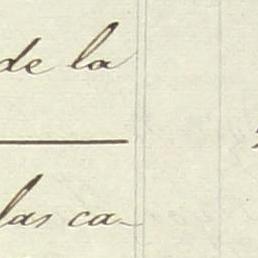 de la
las ca-